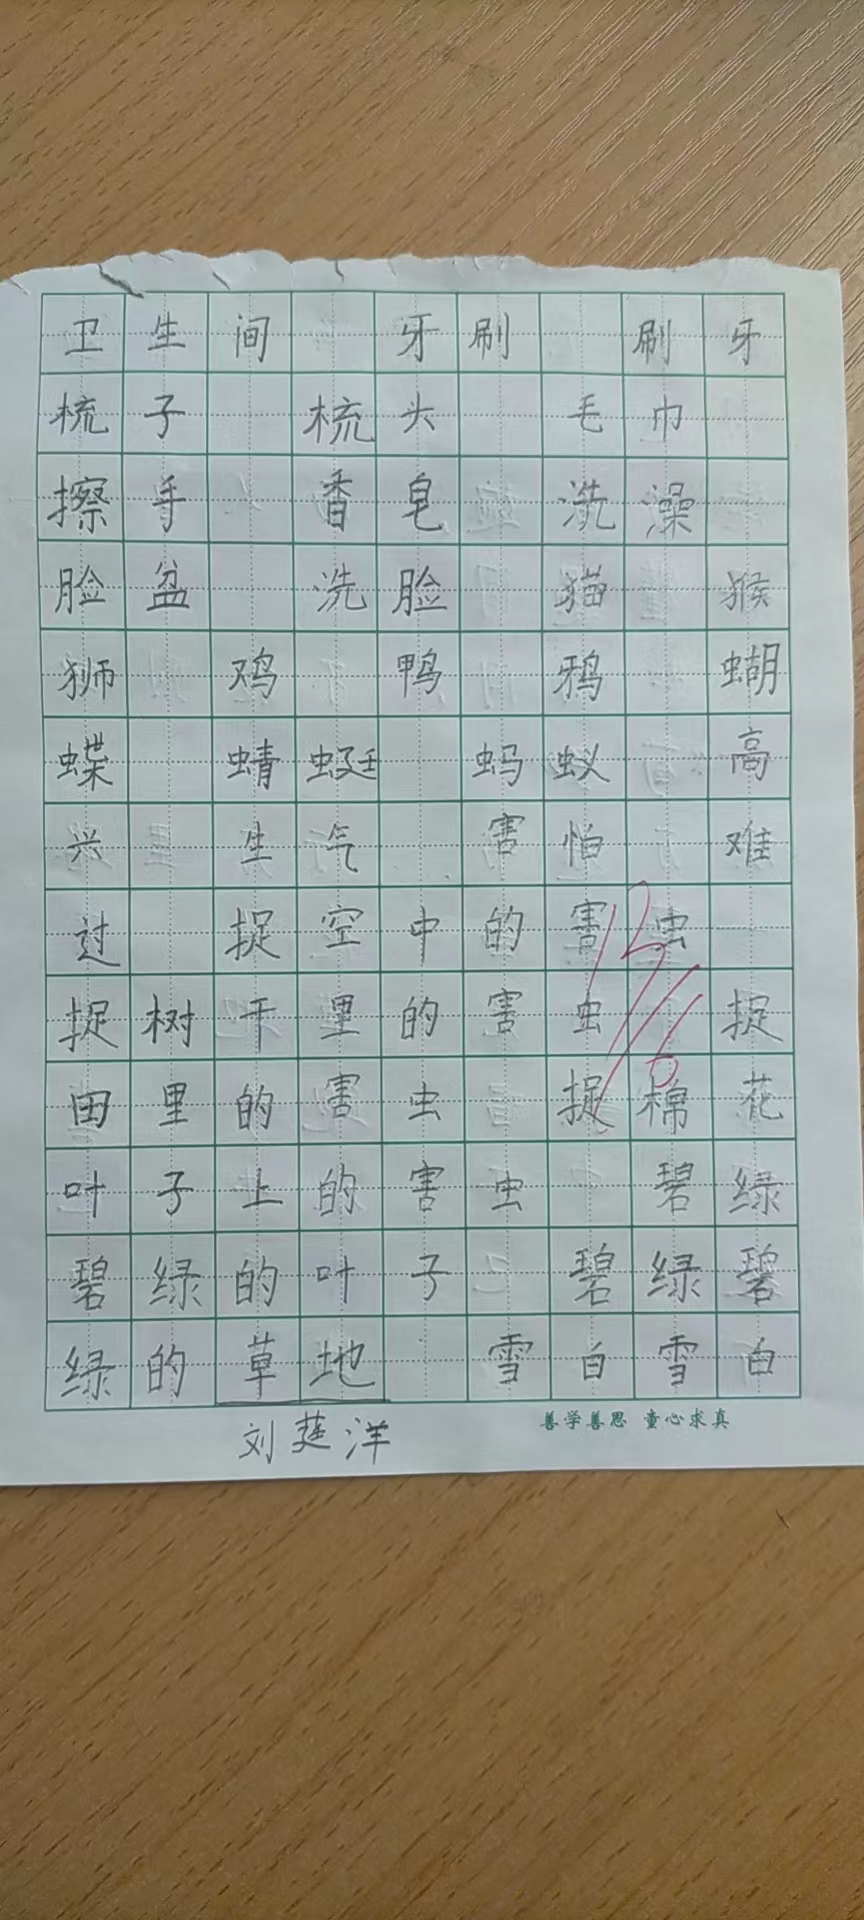 卫生间 牙刷 刷牙
梳子 梳头 毛巾
擦手 香皂 洗澡
脸盆 洗脸 猫 猴
狮 鸡 鸭 鸦 蝴
蝶 蜻蜓 蚂蚁 高
兴 生气 害怕 难
过 捉空中的害虫
捉树干里的害虫 捉
田里的害虫 捉棉花
叶子上的害虫 碧绿
碧绿的叶子 碧绿碧
绿的草地 雪白雪白
刘莛洋
善学善思 童心求真
12/16